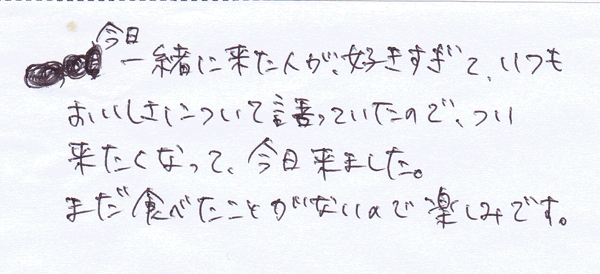 今日
一緒に来た人が、好きすぎて、いつも
おいしさについて語っていたので、つい
来たくなって、今日来ました。
まだ食べたことがないので楽しみです。